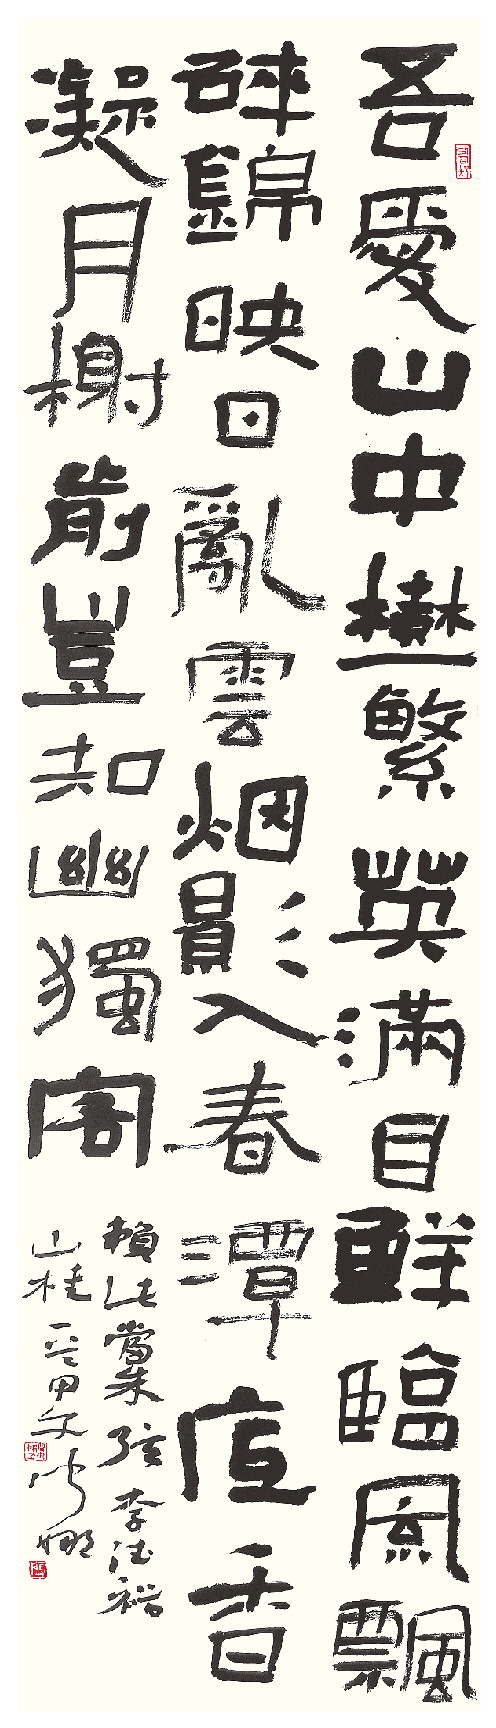 吾愛山中樹繁英滿目鮮臨風飄
碎錦映日亂雲烟影入春潭底香
凝月榭前豈知幽獨客
賴此當朱弦李德裕
山桂